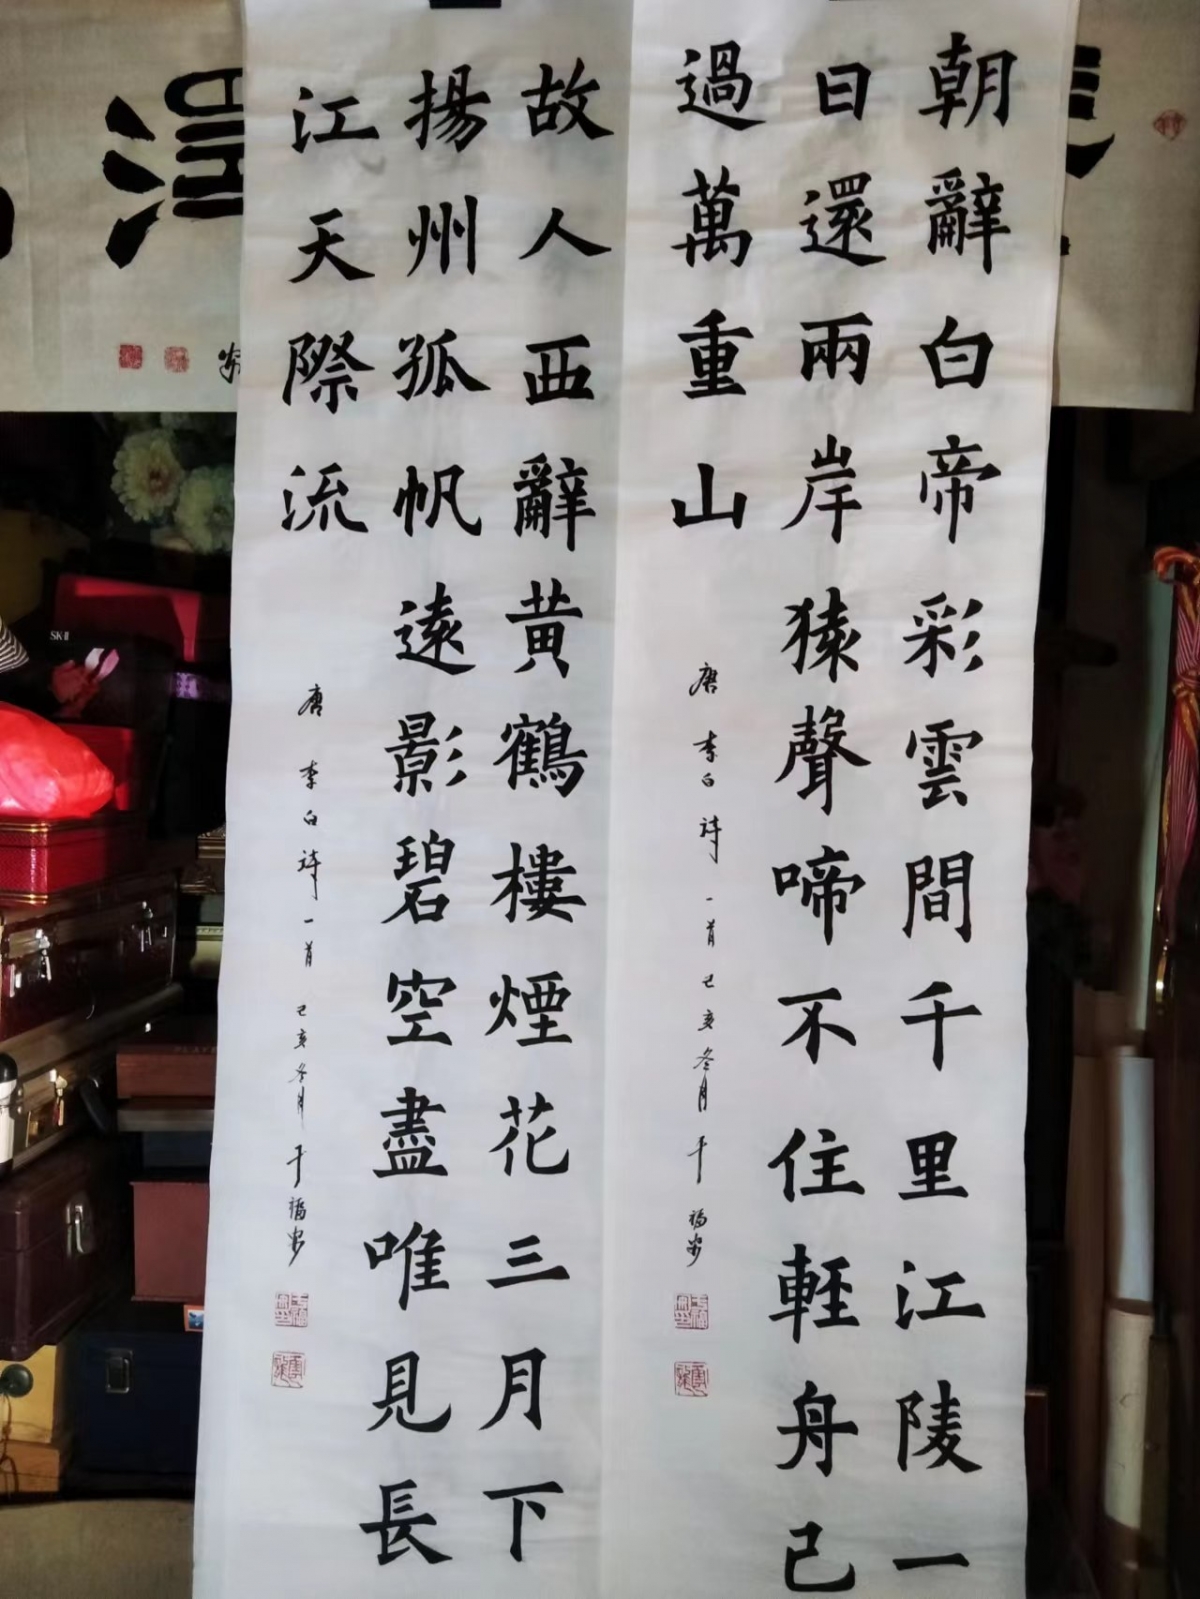 朝辭白帝彩雲間千里江陵一
日還兩岸猿聲啼不住輕舟已
過萬重山
唐 李白詩一首己亥冬月于福安
故人西辭黃鶴樓煙花三月下
揚州孤帆遠影碧空盡唯見長
江天際流
唐 李白詩一首己亥冬月于福安
SK-II